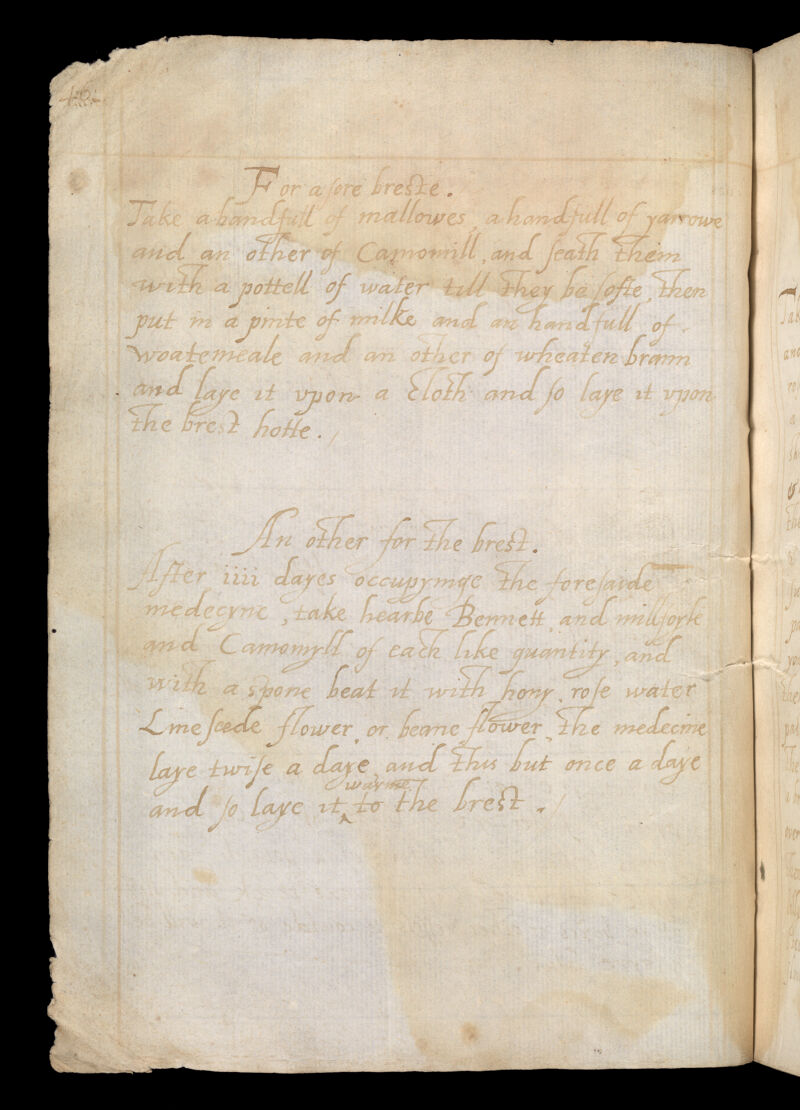 46
For a sore breste.
Take a handfull of mallowes, a handfull of yarrowe
and an other of Camomill, and seath them
with a pottell of water till they be softe, then
put in a pinte of milke and an handfull of
woatemeale and an other of wheaten brann
and laye it vpon a cloth and so laye it vpon
the brest hotte.
An other for the brest.
After iiii dayes occupyinge the foresaide
medecyne, take hearbe Bennett, and millfoyle
and Camomyll of each like quantity, and
with a spone beat it with hony, rose water
Linesede flower, or beane flower, the medecine
laye twise a daye, and this but once a daye
warme
and so laye it ^ to the brest.